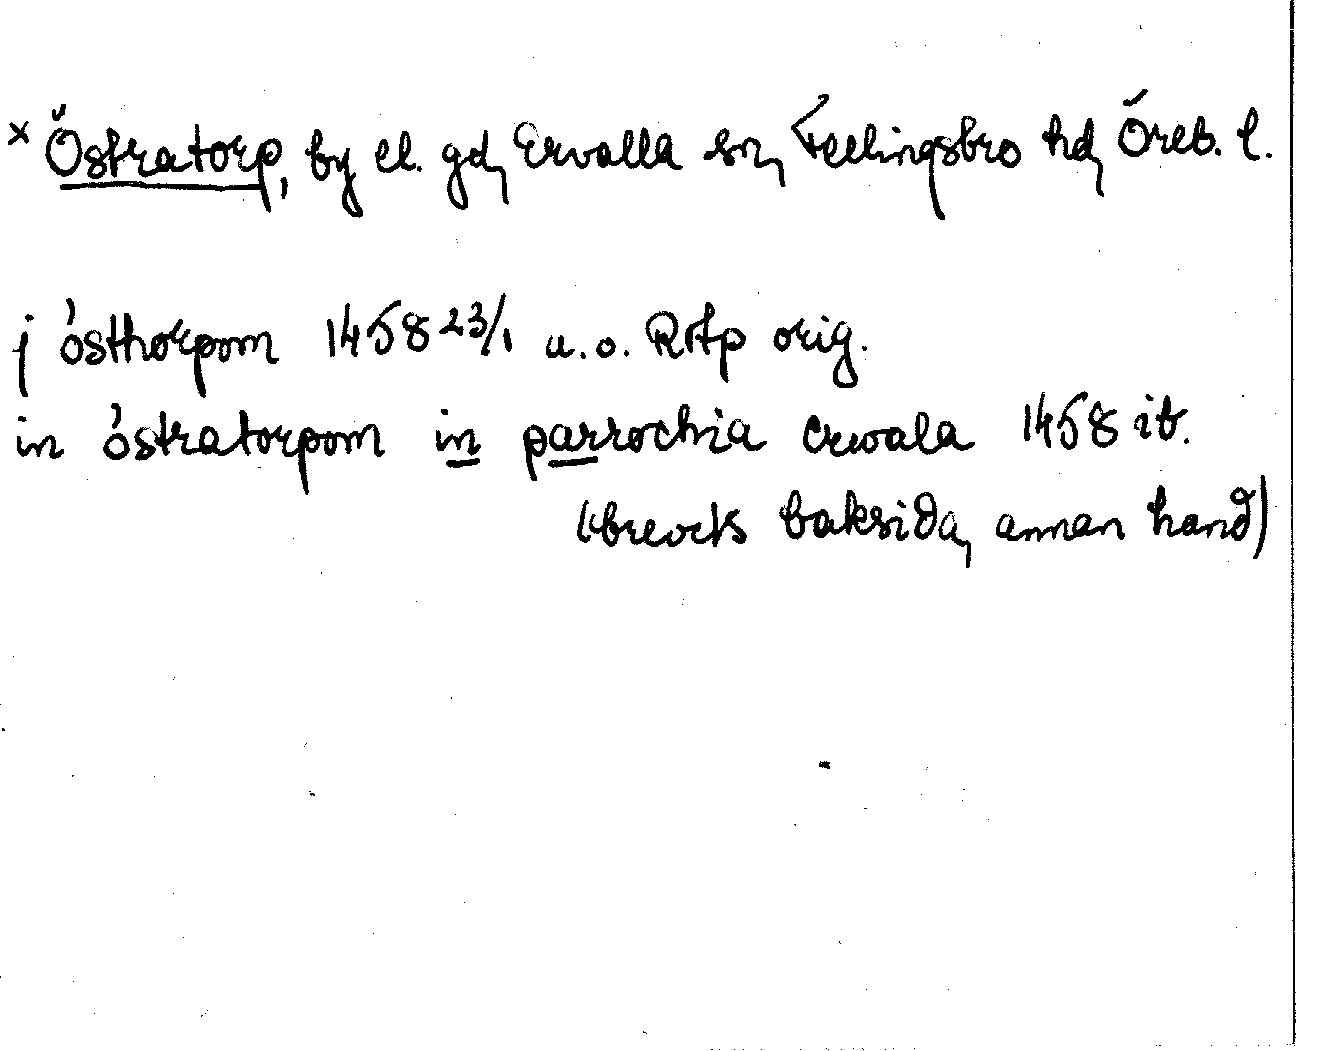 × Östratorp, by el. gd, Ervalla sn, Fellingsbro hd, Öreb. l.
j ósthorpom 1458 23/1 u.o. RAp orig.
in óstratorpom in parrochia erwala 1458 ib.
(brevets baksida, annan hand)